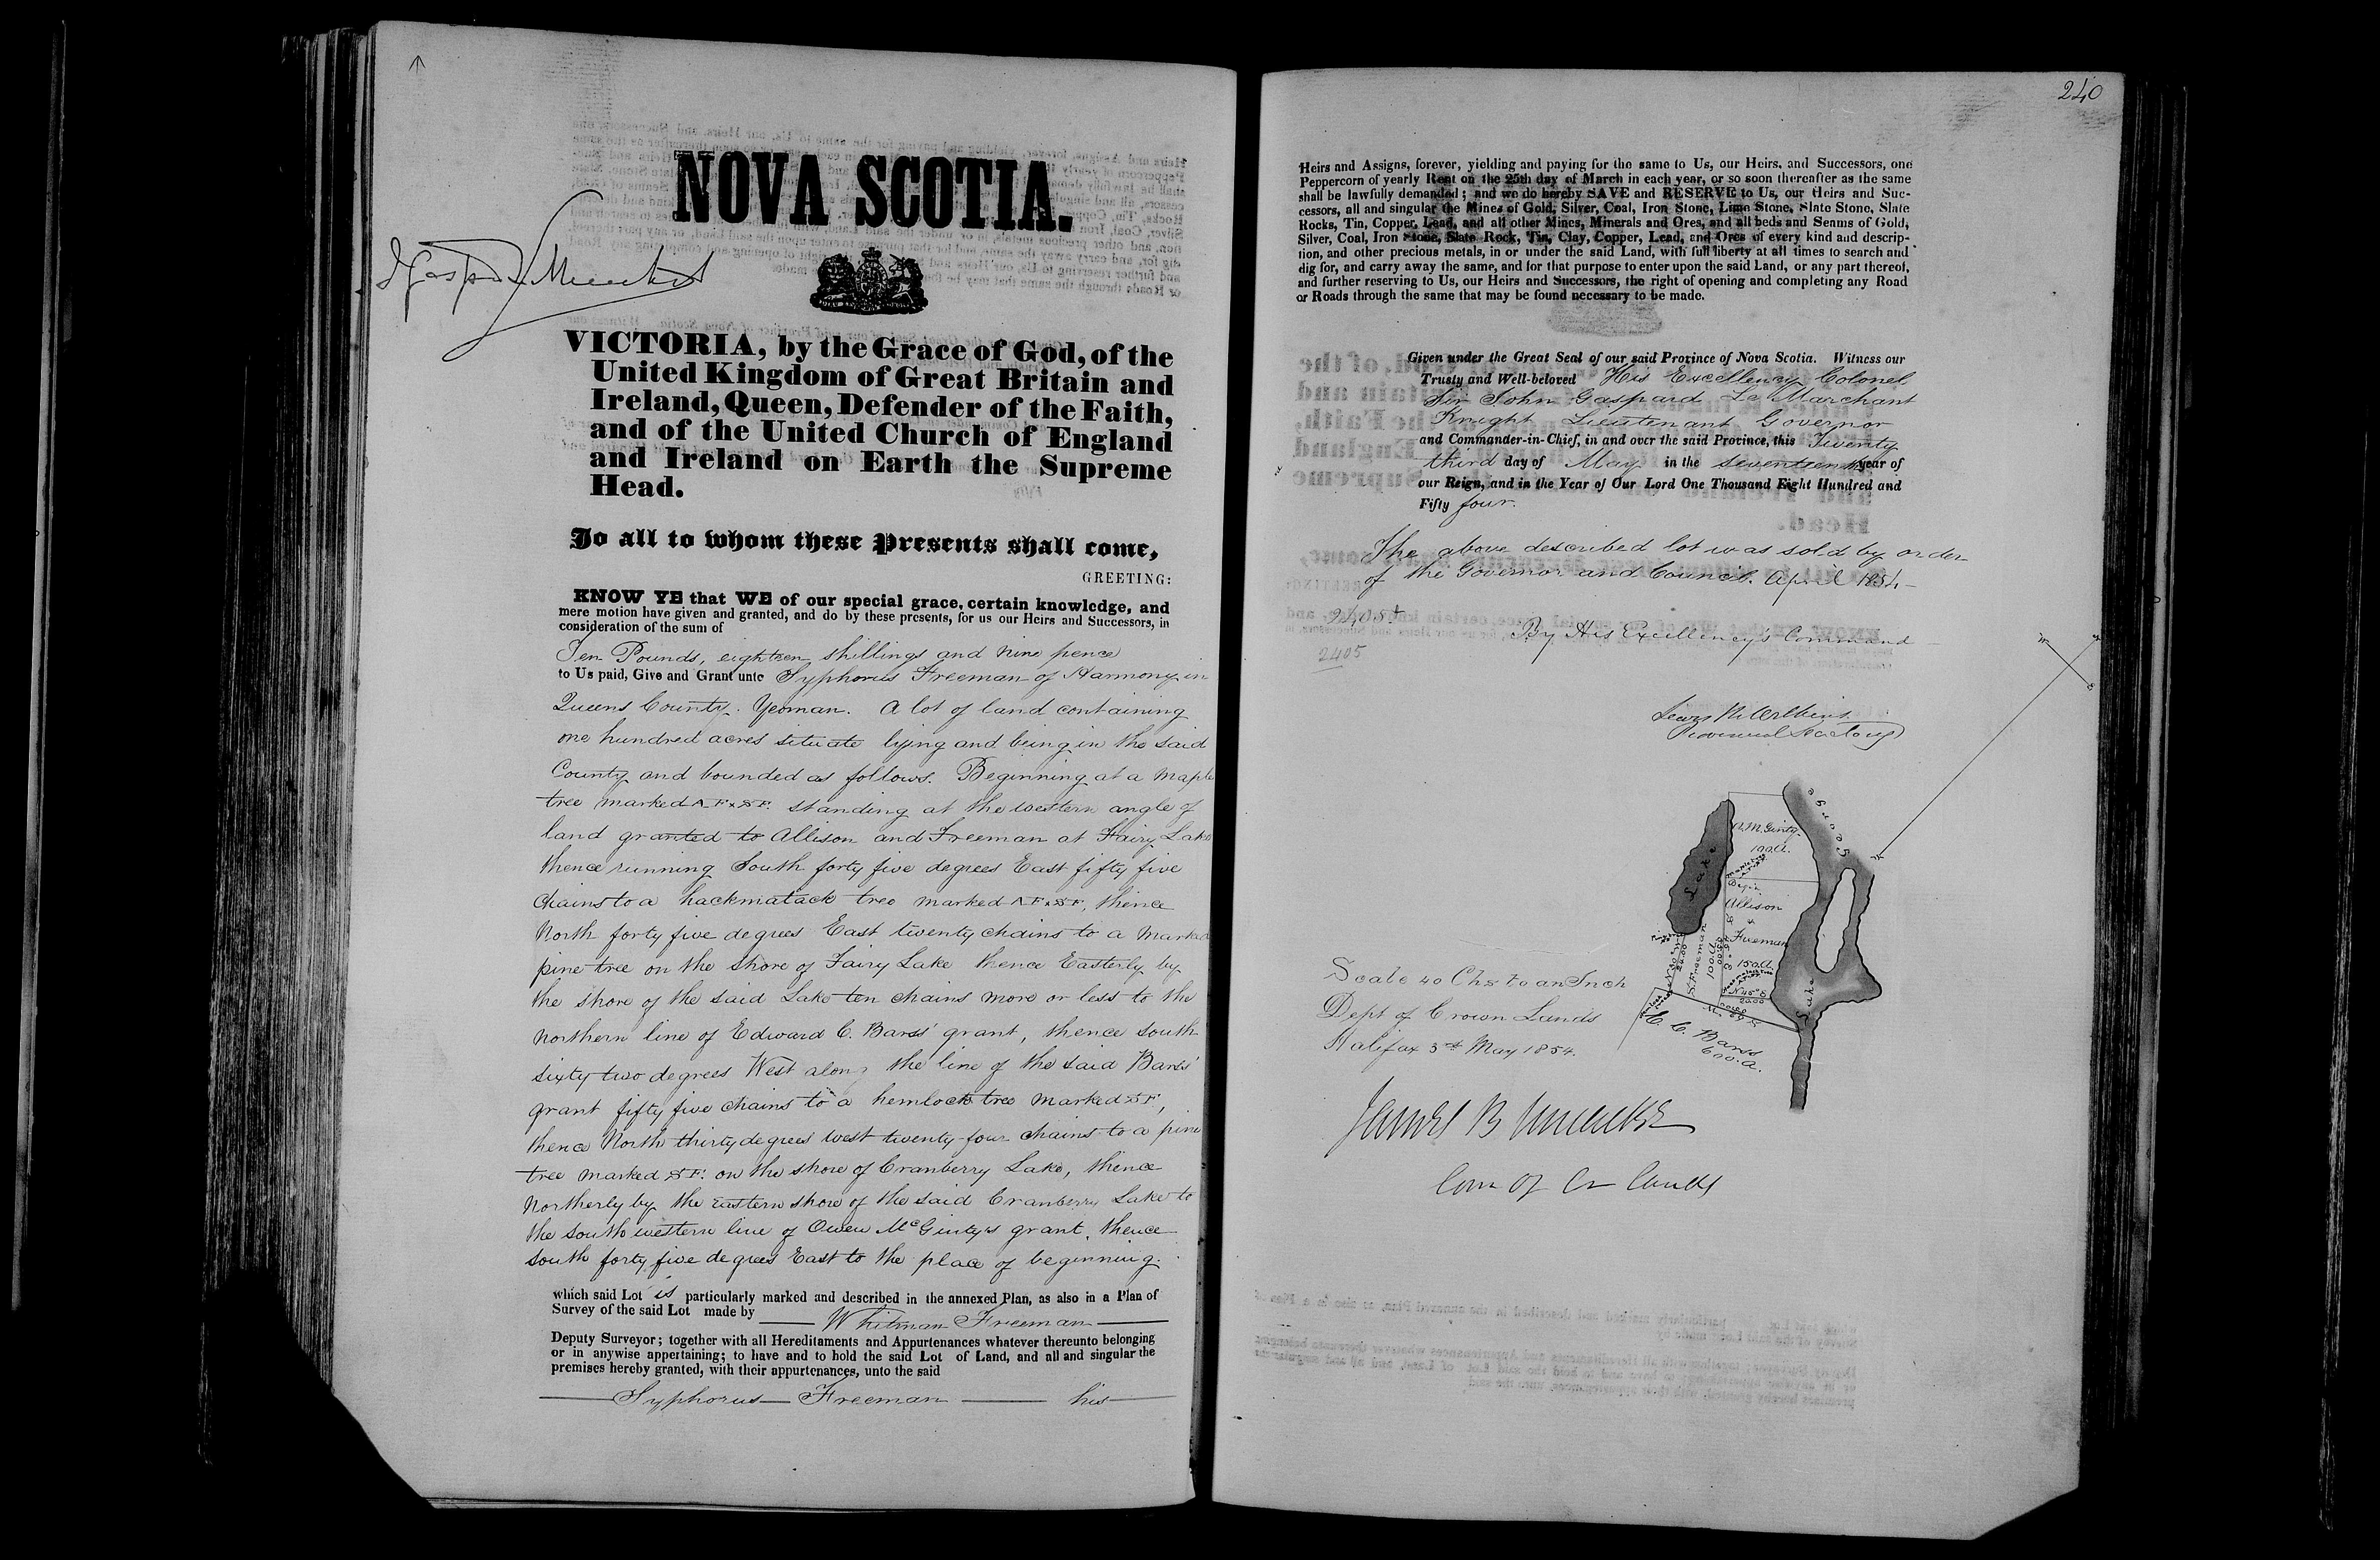 NOVA SCOTIA.
VICTORIA, by the Grace of God, of the
United Kingdom of Great Britain and
Ireland, Queen, Defender of the Faith,
and of the United Church of England
and Ireland on Earth the Supreme
Head.
To all to whom these Presents shall come,
GREETING:
KNOW YE that WE of our special grace, certain knowledge, and
mere motion have given and granted, and do by these presents, for us our Heirs and Successors, in
consideration of the sum of
Ten Pounds, eighteen shillings and nine pence
to Us paid, Give and Grant unto Syphorus Freeman of Harmony in
Queens County. Yeoman. A lot of land containing
one hundred acres situate lying and being in the said
County and bounded as follows. Beginning at a maple
tree marked A F & S F. standing at the western angle of
land granted to Allison and Freeman at Fairy Lake
thence running South forty five degrees East fifty five
chains to a hackmatack tree marked A F & S F, thence
North forty five degrees East twenty chains to a marked
pine tree on the shore of Fairy Lake thence Easterly by
the shore of the said Lake ten chains more or less to the
northern line of Edward C. Barss' grant, thence south
sixty two degrees West along the line of the said Barss'
grant fifty five chains to a hemlock tree marked S F,
thence North thirty degrees west twenty four chains to a pine
tree marked S F. on the shore of Cranberry Lake, thence
Northerly by the eastern shore of the said Cranberry Lake to
the south western line of Owen McGinty's grant, thence
south forty five degrees East to the place of beginning.
which said Lot is particularly marked and described in the annexed Plan, as also in a Plan of
Survey of the said Lot made by Whitman Freeman
Deputy Surveyor; together with all Hereditaments and Appurtenances whatever thereunto belonging
or in anywise appertaining; to have and to hold the said Lot of Land, and all and singular the
premises hereby granted, with their appurtenances, unto the said
Syphorus Freeman his
240
Heirs and Assigns, forever, yielding and paying for the same to Us, our Heirs, and Successors, one
Peppercorn of yearly Rent on the 25th day of March in each year, or so soon thereafter as the same
shall be lawfully demanded; and we do hereby SAVE and RESERVE to Us, our Heirs and Suc-
cessors, all and singular the Mines of Gold, Silver, Coal, Iron Stone, Lime Stone, Slate Stone, Slate
Rocks, Tin, Copper, Lead, and all other Mines, Minerals and Ores, and all beds and Seams of Gold,
Silver, Coal, Iron Stone, Slate Rock, Tin, Clay, Copper, Lead, and Ores of every kind and descrip-
tion, and other precious metals, in or under the said Land, with full liberty at all times to search and
dig for, and carry away the same, and for that purpose to enter upon the said Land, or any part thereof,
and further reserving to Us, our Heirs and Successors, the right of opening and completing any Road
or Roads through the same that may be found necessary to be made.
Given under the Great Seal of our said Province of Nova Scotia. Witness our
Trusty and Well-beloved His Excellency Colonel
Sir John Gaspard Le Marchant
Knight Lieutenant Governor
and Commander-in-Chief, in and over the said Province, this Twenty
third day of May in the seventeenth year of
our Reign, and in the Year of Our Lord One Thousand Eight Hundred and
Fifty four.
The above described lot was sold by order
of the Governor and Council. April 1854
2405
By His Excellency's Command
2405
Provincial Secretary
George
Lake
O. McGinty
100 A.
Allison
&
Freeman
150 A.
S. Freeman
100 A.
N 45° E
20.00
Lake
E. C. Barss
600. A.
Scale 40 Chs to an Inch
Dept of Crown Lands
Halifax 3rd May 1854.
James B Uniacke
Com of Cr Lands